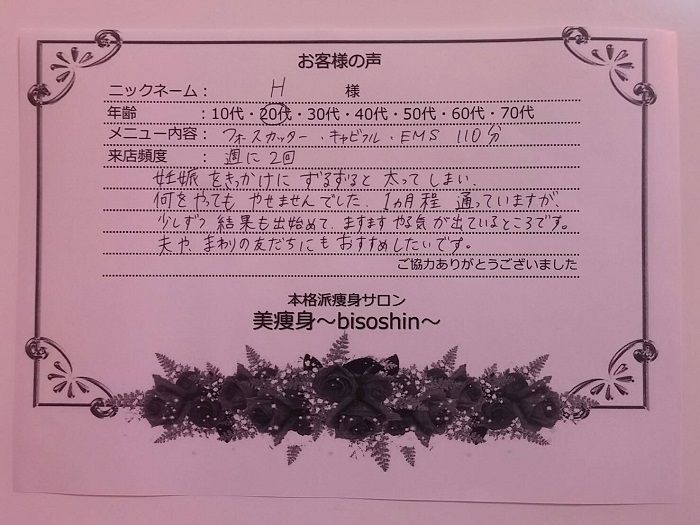 お客様の声
ニックネーム： H 様
年齢 ：10代・20代・30代・40代・50代・60代・70代
メニュー内容： フォースカッター・キャビフル・EMS 110分
来店頻度 ： 週に2回
妊娠をきっかけに ずるずると 太ってしまい、
何をやっても やせませんでした。1ヵ月程 通っていますが、
少しずつ 結果も出始めて、ますます やる気が出ているところです。
夫や、まわりの友だちにも おすすめしたいです。
ご協力ありがとうございました
本格派痩身サロン
美痩身～bisoshin～